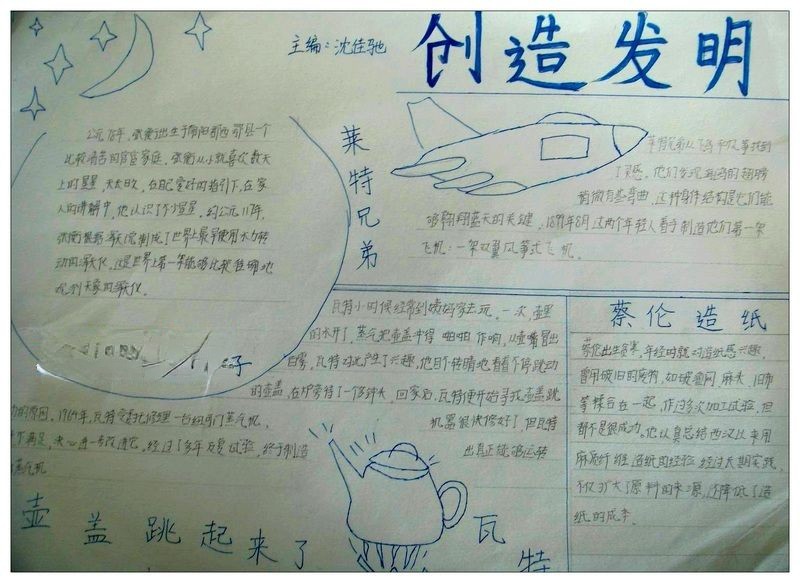 主编：沈佳驰
创造发明
公元78年，张衡出生于南阳郡西鄂县一个
比较清苦的官宦家庭。张衡从小就喜欢数天
上的星星，天天日久，在自己爱好的指引下，在家
人的讲解中，他认识了不少星星。约公元117年，
张衡根据浑天说制成了世界上最早使用水力转
动的浑天仪。这是世界上第一架能够比较准确地
观测天象的浑天仪。
子
莱特兄弟
莱特兄弟从飞鸟和风筝找到
了灵感。他们发现
鸟的翅膀
稍微有些弯曲，这种身体结构是它们能
够翱翔蓝天的关键。1899年8月这两个年轻人着手制造他们第一架
飞机：一架双翼风筝式飞机。
瓦特小时候经常到
家去玩。一次，壶里
的水开了，蒸汽把壶盖冲得啪啪作响，从壶嘴冒出
白雾，瓦特对此产生了兴趣，他目不转睛地看着不停跳动
的壶盖，在炉旁待了一个多钟头。回家后，瓦特便开始寻找壶盖跳
动的原因。1764年，瓦特受委托修理一台纽可门蒸气机，
机器很快修好了，但瓦特
不满足，决心进一步改进它。经过了多年反复试验，终于制造
出真正能够运转
蒸汽机
壶盖跳起来了
瓦特
蔡伦造纸
蔡伦出生贫寒，年轻时就对造纸感兴趣，
曾用破旧的废物，如破渔网 麻头 旧布
等糅合在一起，作过多次加工试验，但
都不是很成功。他认真总结西汉以来用
麻质纤维造纸的经验，经过长期实践，
不仅扩大了原料的来源，还降低了造
纸的成本。